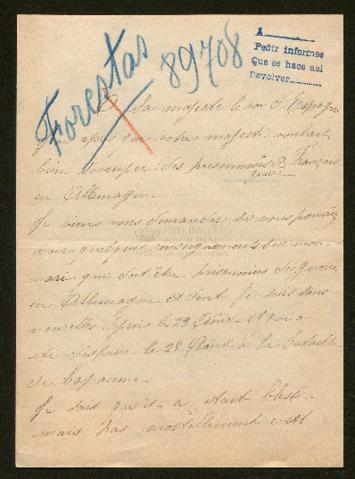 Forestas
89708
A
Pedir informes
Que se hace así
Devolver
A Sa majesté le roi d'Espagne
que votre majesté voulait
bien s'occuper des prisonniers Français
guerre
en Allemagne.
Je viens vous demander si vous pouviez
avoir quelques renseignements sur mon
mari qui doit être prisonnier de guerre
en Allemagne et dont je suis sans
nouvelles depuis le 23 Août et qui a
été disparu le 28 Août a la bataille
de bapaume.
Je sais qu'il a était blessé
mais pas mortellement